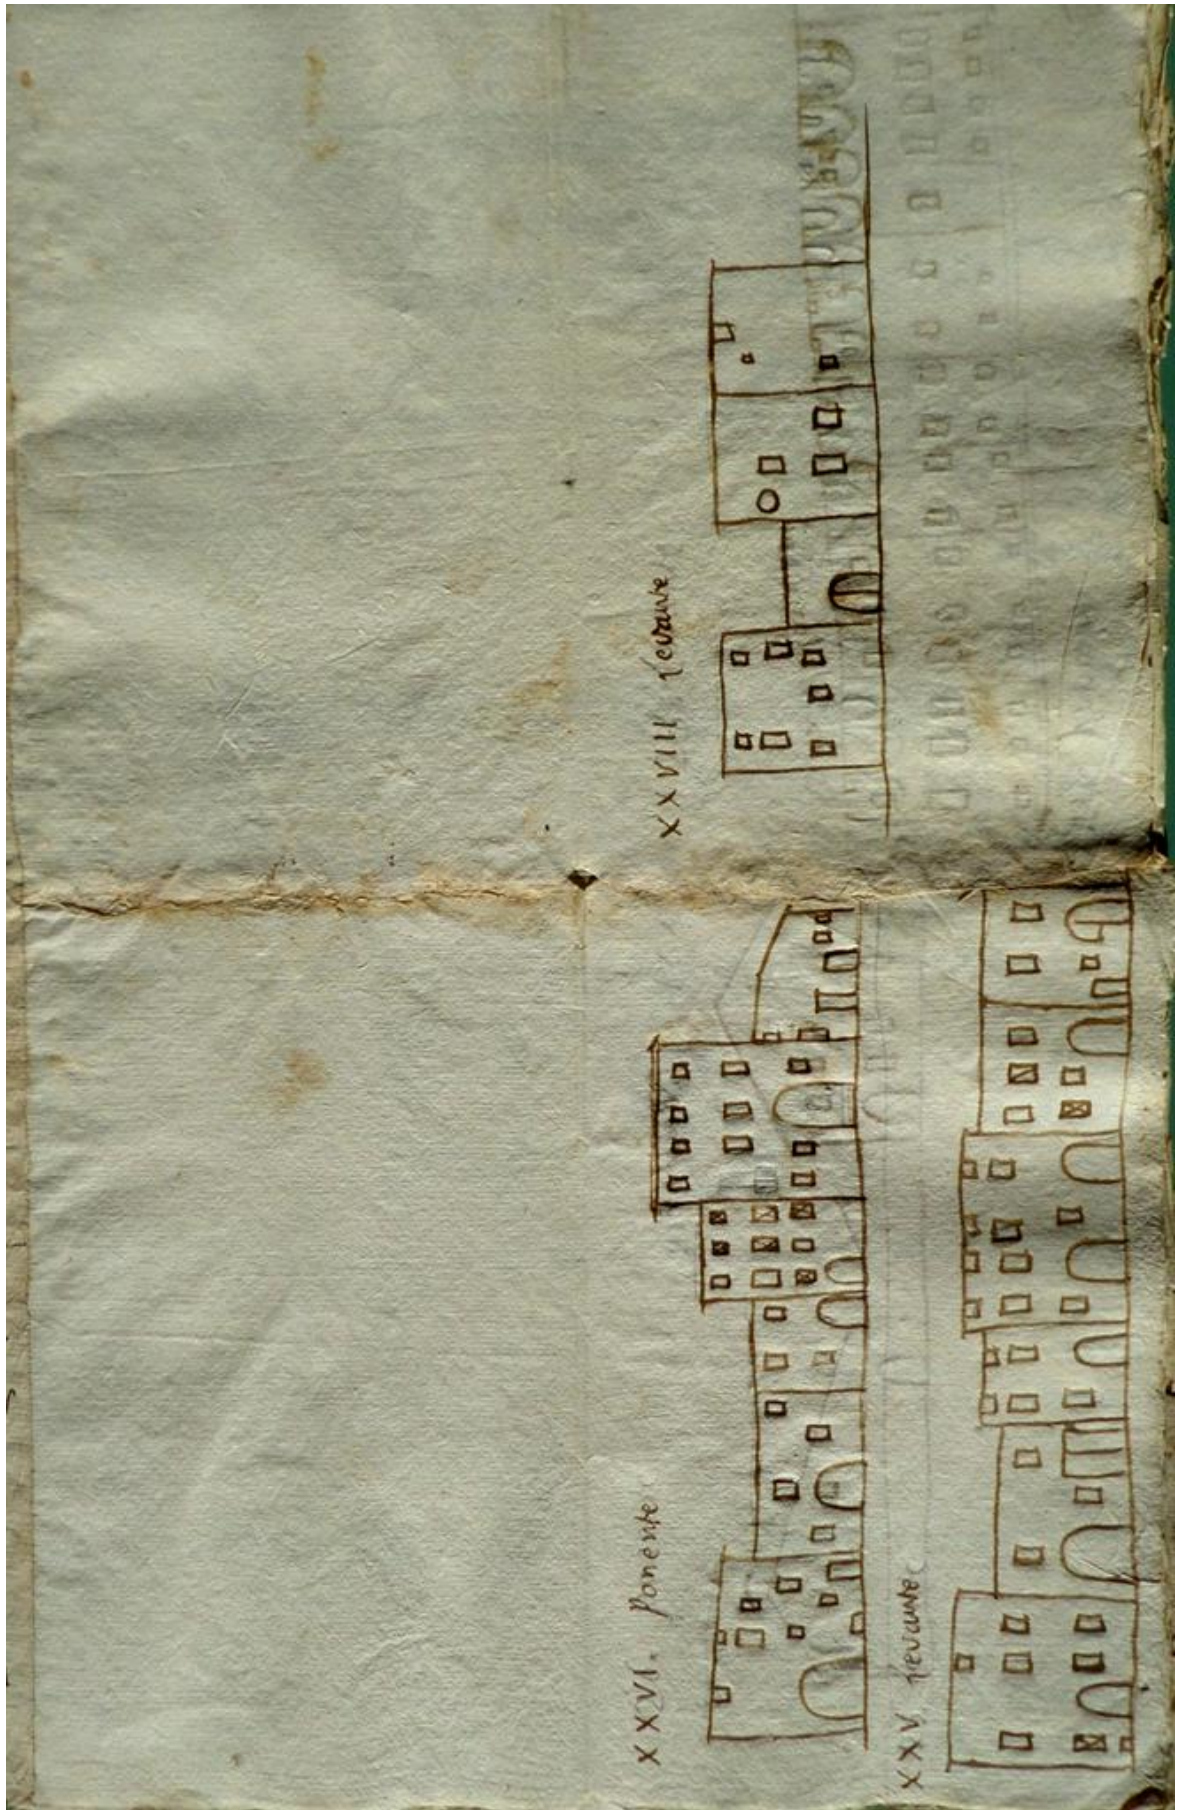 XXVIII levante
XXVI. Ponente
XXV levante